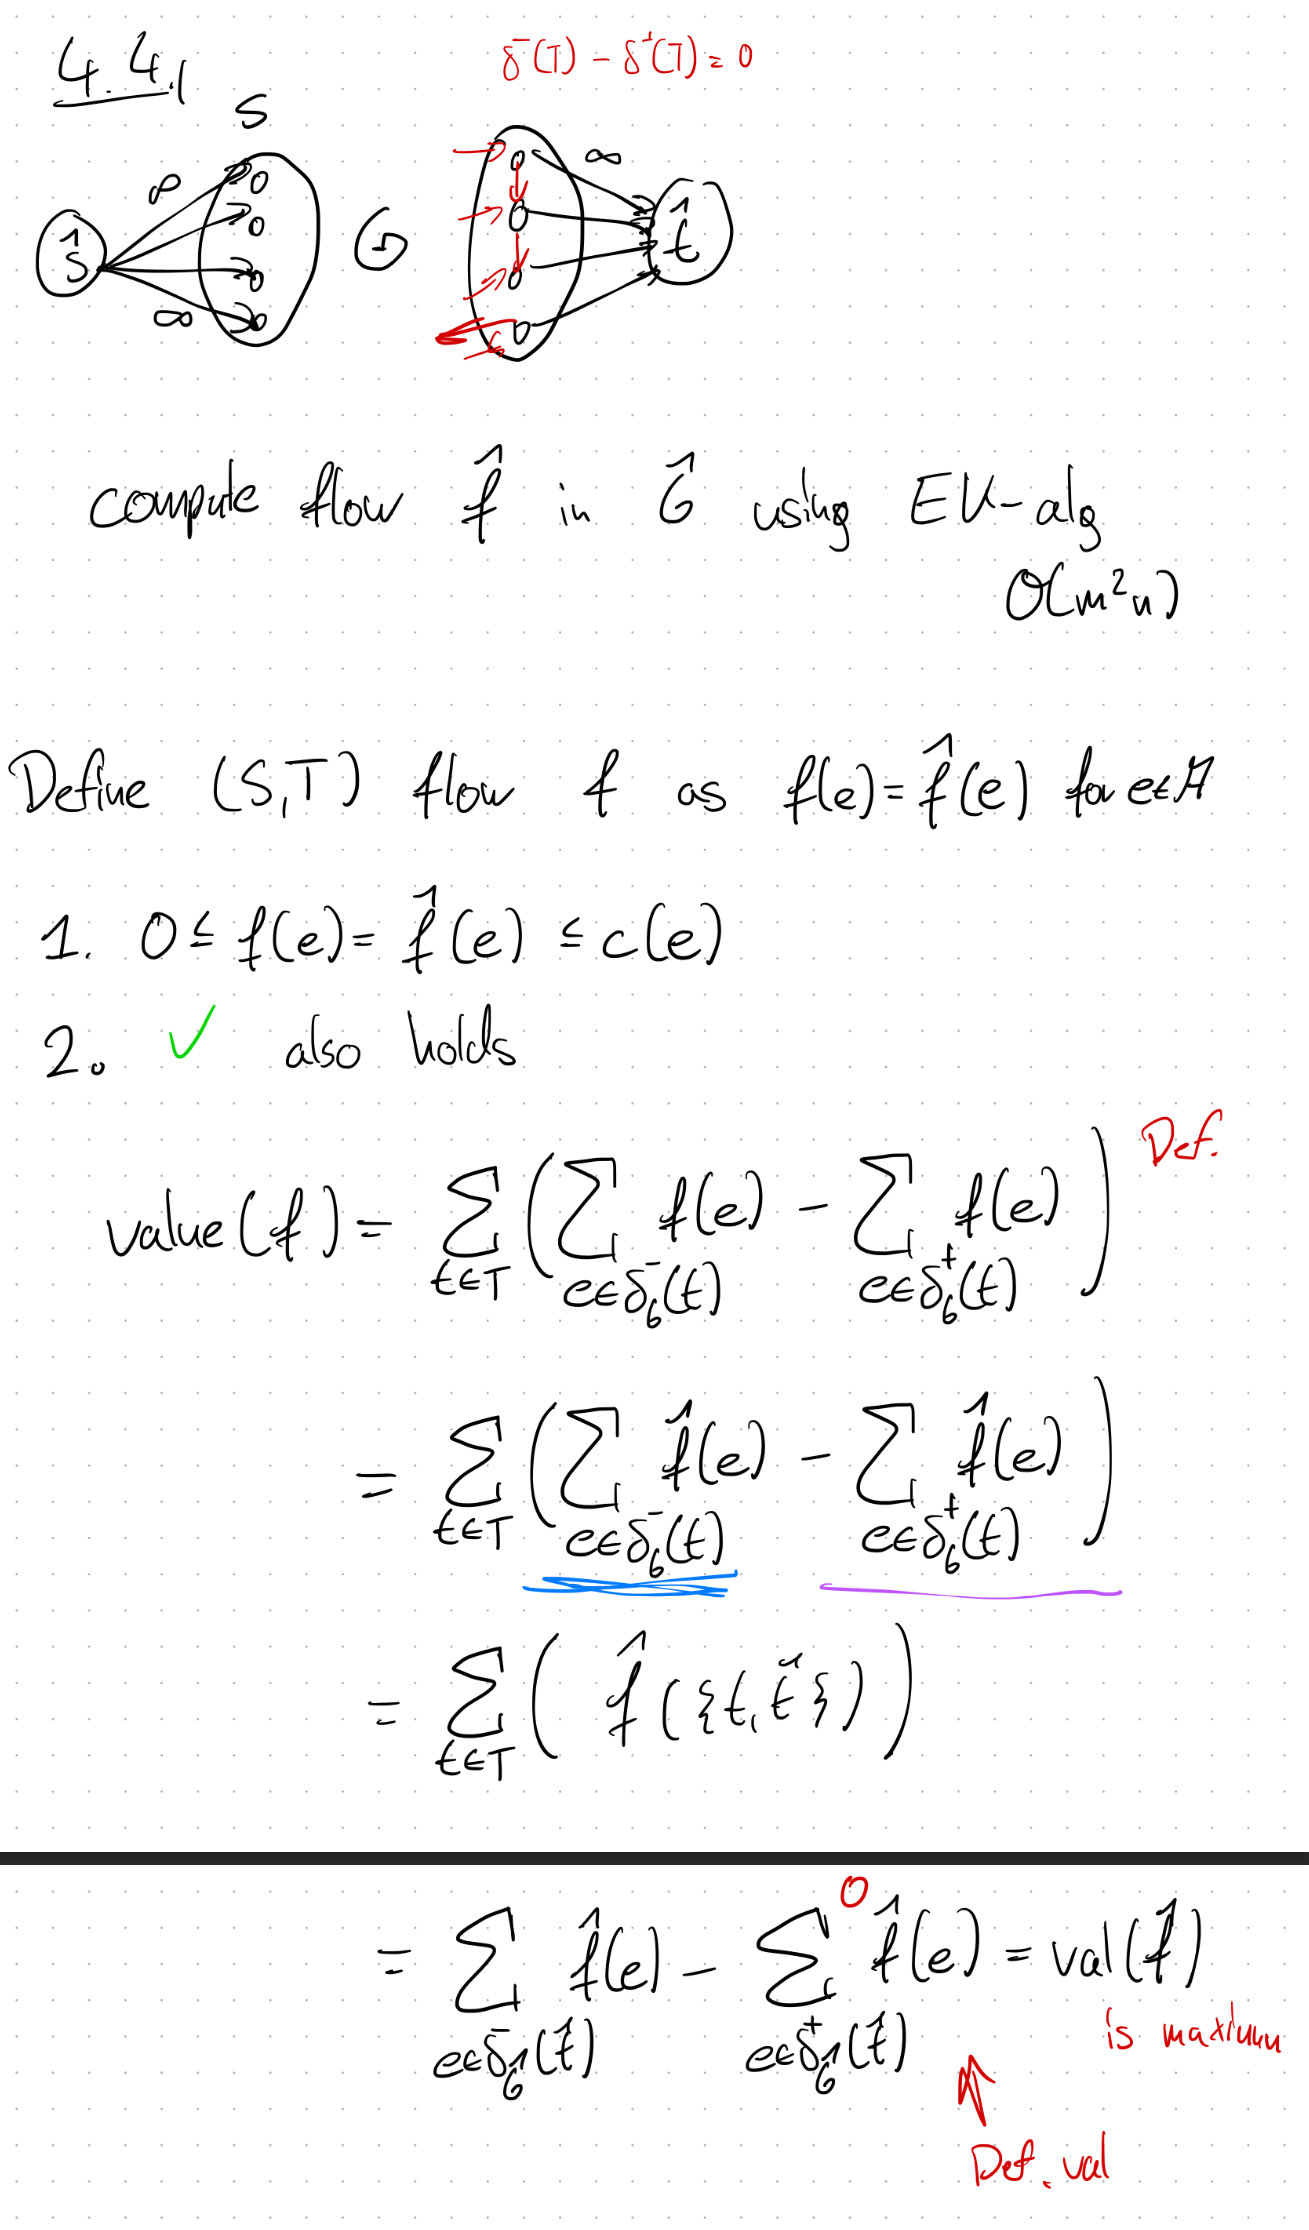 4.4.1
δ⁻(T) - δ⁺(T) = 0
S
∞
∞
ŝ
G
∞
t̂
compute flow f̂ in Ĝ using EK-alg
O(m²n)
Define (S,T) flow f as f(e) = f̂(e) for e∈A
1. 0 ≤ f(e) = f̂(e) ≤ c(e)
2. ✓ also holds
value(f) = ∑_{t∈T} ( ∑_{e∈δ⁻_G(t)} f(e) - ∑_{e∈δ⁺_G(t)} f(e) ) Def.
= ∑_{t∈T} ( ∑_{e∈δ⁻_G(t)} f̂(e) - ∑_{e∈δ⁺_G(t)} f̂(e) )
= ∑_{t∈T} ( f̂({t, t̂}) )
= ∑_{e∈δ⁻_Ĝ(t̂)} f̂(e) - ∑_{e∈δ⁺_Ĝ(t̂)} f̂(e) = val(f̂)
0
is maximum
Def. val